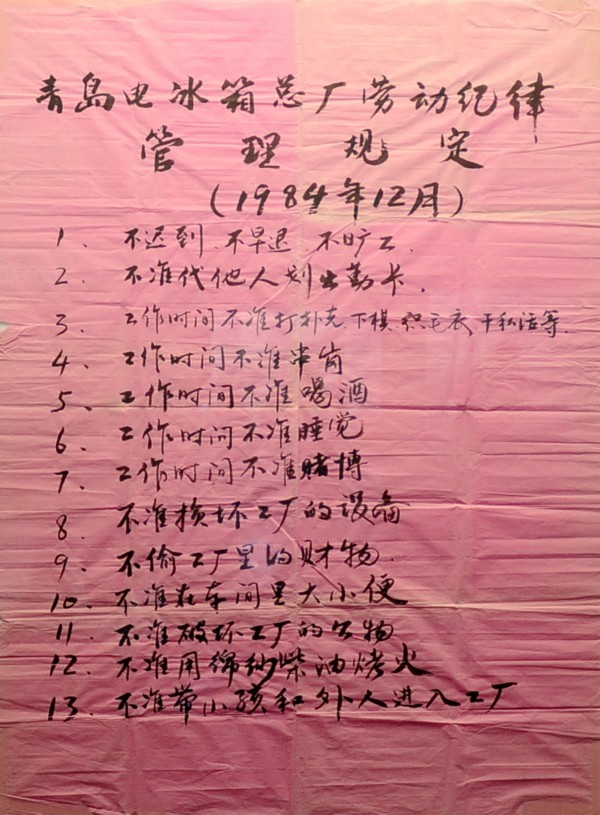 青岛电冰箱总厂劳动纪律
管理规定
(1984年12月)
1、不迟到、不早退、不旷工、
2、不准代他人划出勤卡、
3、工作时间不准打扑克、下棋、织毛衣、干私活等、
4、工作时间不准串岗
5、工作时间不准喝酒
6、工作时间不准睡觉
7、工作时间不准赌博
8、不准损坏工厂的设备
9、不偷工厂里的财物、
10、不准在车间里大小便
11、不准破坏工厂的公物
12、不准用绵纱柴油烤火
13、不准带小孩和外人进入工厂